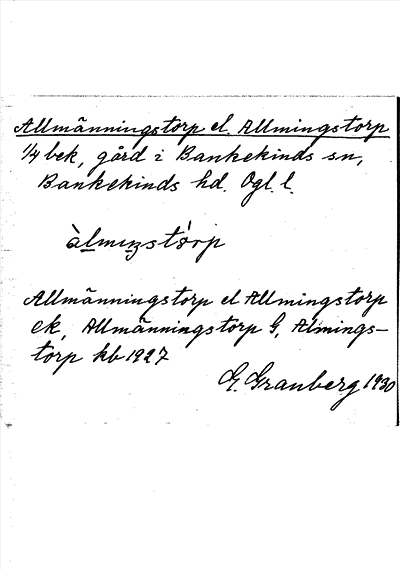 Allmänningstorp el. Allmingstorp
1/4 bek, gård i Bankekinds sn,
Bankekinds hd. Ögl. l.
àlmıŋstɷ̀rp
Allmänningstorp el Allmingstorp
ek, Allmänningstorp G, Almings-
torp kb 1927
G. Granberg 1930